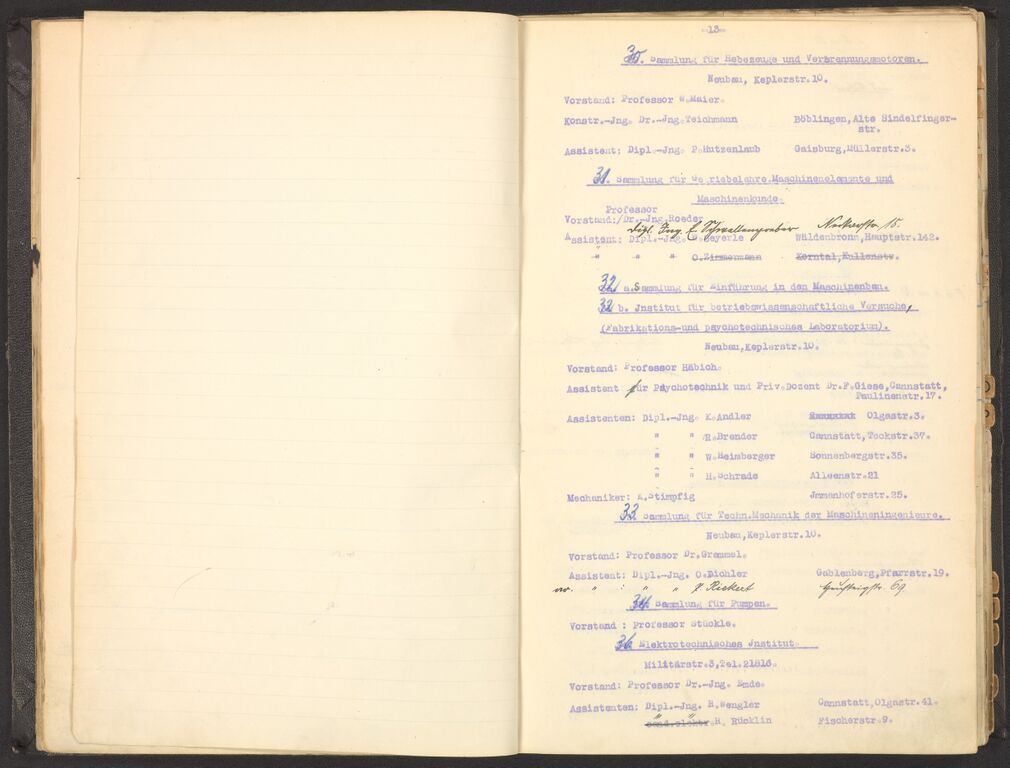 -13-
30. Sammlung für Hebezeuge und Verbrennungsmotoren.
Neubau, Keplerstr.10.
Vorstand: Professor W.Maier.
Konstr.-Jng. Dr.-Jng.Teichmann Böblingen,Alte Sindelfinger-
str.
Assistent: Dipl.-Jng. P.Hutzenlaub Gaisburg,Müllerstr.3.
31. Sammlung für Getriebelehre,Maschinenelemente und
Maschinenkunde.
Professor
Vorstand:/Dr.-Jng.Roeder
Dipl. Ing. E. Schrallengraber Neckarstr. 15.
Assistent: Dipl.-Jng. Beyerle Wäldenbronn,Hauptstr.142.
" " " O.Zimmermann Korntal,Kullenstr.
32 a.Sammlung für Einführung in den Maschinenbau.
32 b. Jnstitut für betriebswissenschaftliche Versuche,
(Fabrikations-und psychotechnisches Laboratorium).
Neubau,Keplerstr.10.
Vorstand: Professor Häbich.
Assistent für Psychotechnik und Priv.Dozent Dr.F.Giese,Cannstatt,
Paulinenstr.17.
Assistenten: Dipl.-Jng. K.Andler Olgastr.3.
" " R.Brender Cannstatt,Teckstr.37.
" " W.Heimberger Sonnenbergstr.35.
" " H.Schrade Alleenstr.21
Mechaniker: A.Stimpfig Jmmenhoferstr.25.
33. Sammlung für Techn.Mechanik der Maschineningenieure.
Neubau,Keplerstr.10.
Vorstand: Professor Dr.Grammel.
Assistent: Dipl.-Jng. O.Eichler Gablenberg,Pfarrstr.19.
" " " Rickert 69
34. Sammlung für Pumpen.
Vorstand : Professor Stückle.
36 Elektrotechnisches Jnstitut.
Militärstr.3,Tel.21816.
Vorstand: Professor Dr.-Jng. Emde.
Assistenten: Dipl.-Jng. R.Wengler Cannstatt,Olgastr.41.
" " cand.elektr.H. Rücklin Fischerstr.9.